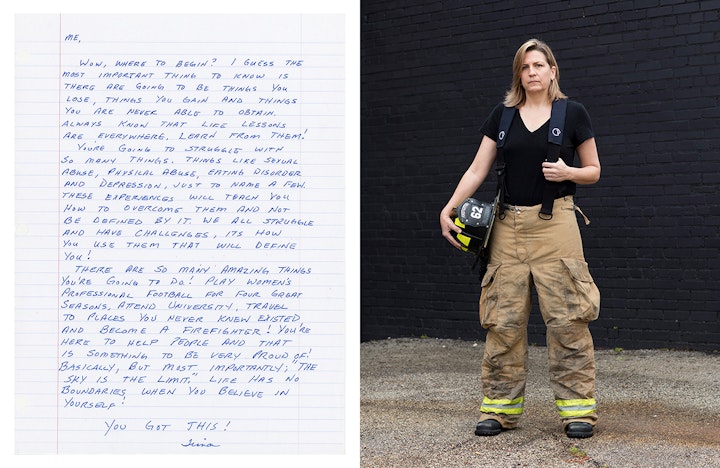 ME,
WOW, WHERE TO BEGIN? I GUESS THE
MOST IMPORTANT THING TO KNOW IS
THERE ARE GOING TO BE THINGS YOU
LOSE, THINGS YOU GAIN AND THINGS
YOU ARE NEVER ABLE TO OBTAIN.
ALWAYS KNOW THAT LIFE LESSONS
ARE EVERYWHERE. LEARN FROM THEM!
YOU'RE GOING TO STRUGGLE WITH
SO MANY THINGS. THINGS LIKE SEXUAL
ABUSE, PHYSICAL ABUSE, EATING DISORDER
AND DEPRESSION, JUST TO NAME A FEW.
THESE EXPERIENCES WILL TEACH YOU
HOW TO OVERCOME THEM AND NOT
BE DEFINED BY IT. WE ALL STRUGGLE
AND HAVE CHALLENGES, ITS HOW
YOU USE THEM THAT WILL DEFINE
YOU!
THERE ARE SO MANY AMAZING THINGS
YOU'RE GOING TO DO! PLAY WOMEN'S
PROFESSIONAL FOOTBALL FOR FOUR GREAT
SEASONS, ATTEND UNIVERSITY, TRAVEL
TO PLACES YOU NEVER KNEW EXISTED,
AND BECOME A FIREFIGHTER! YOU'RE
HERE TO HELP PEOPLE AND THAT
IS SOMETHING TO BE VERY PROUD OF!
BASICALLY, BUT MOST IMPORTANTLY; "THE
SKY IS THE LIMIT." LIFE HAS NO
BOUNDARIES WHEN YOU BELIEVE IN
YOURSELF!
YOU GOT THIS!
73